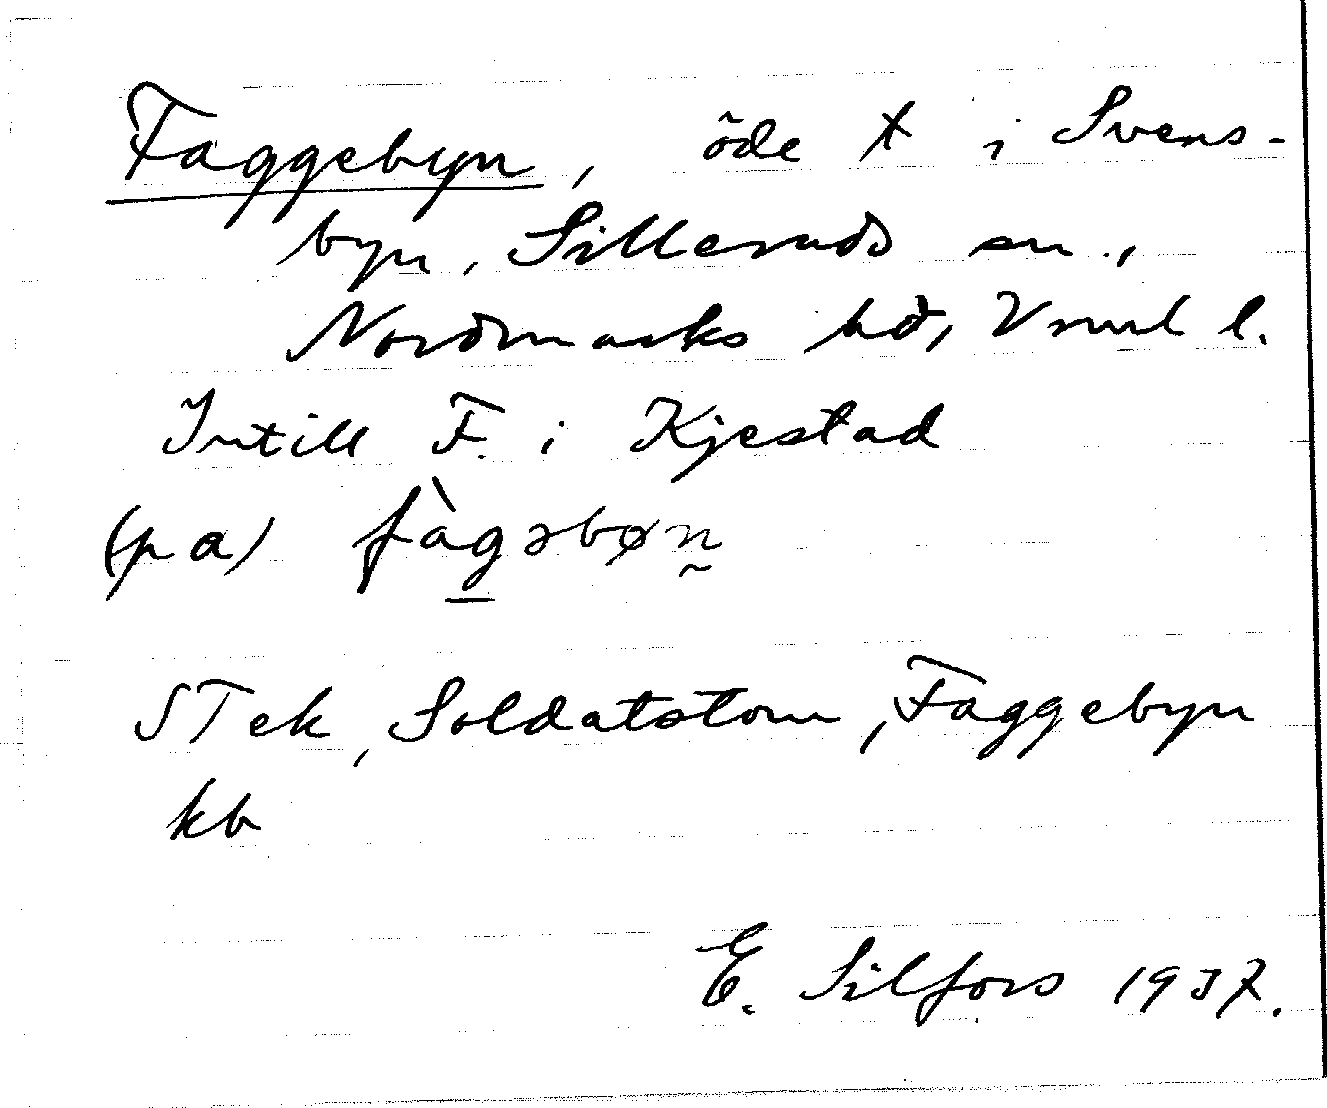 Faggebyn, öde t i Svens-
byn, Silleruds sn.,
Nordmarks hd, Vrml l.
Intill F. i Kjestad
(på) fàgəbøn̰
STek, Soldatstom, Faggebyn
kb
E. Silfors 1937.